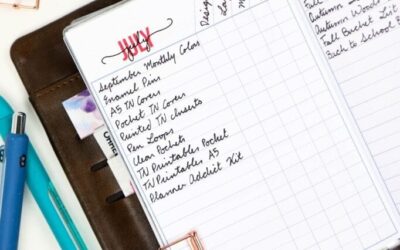 JULY
july
Desig
La
September Monthly Color
Enamel Pins
A5 TN Covers
Pocket TN Covers
Printed TN Inserts
Pen Loops
Clear Pockets
TN Printables Pocket
TN Printables A5
Planner Addict Kit
Autumn
Autumn Wood
Fall Bucket List
Back to School B